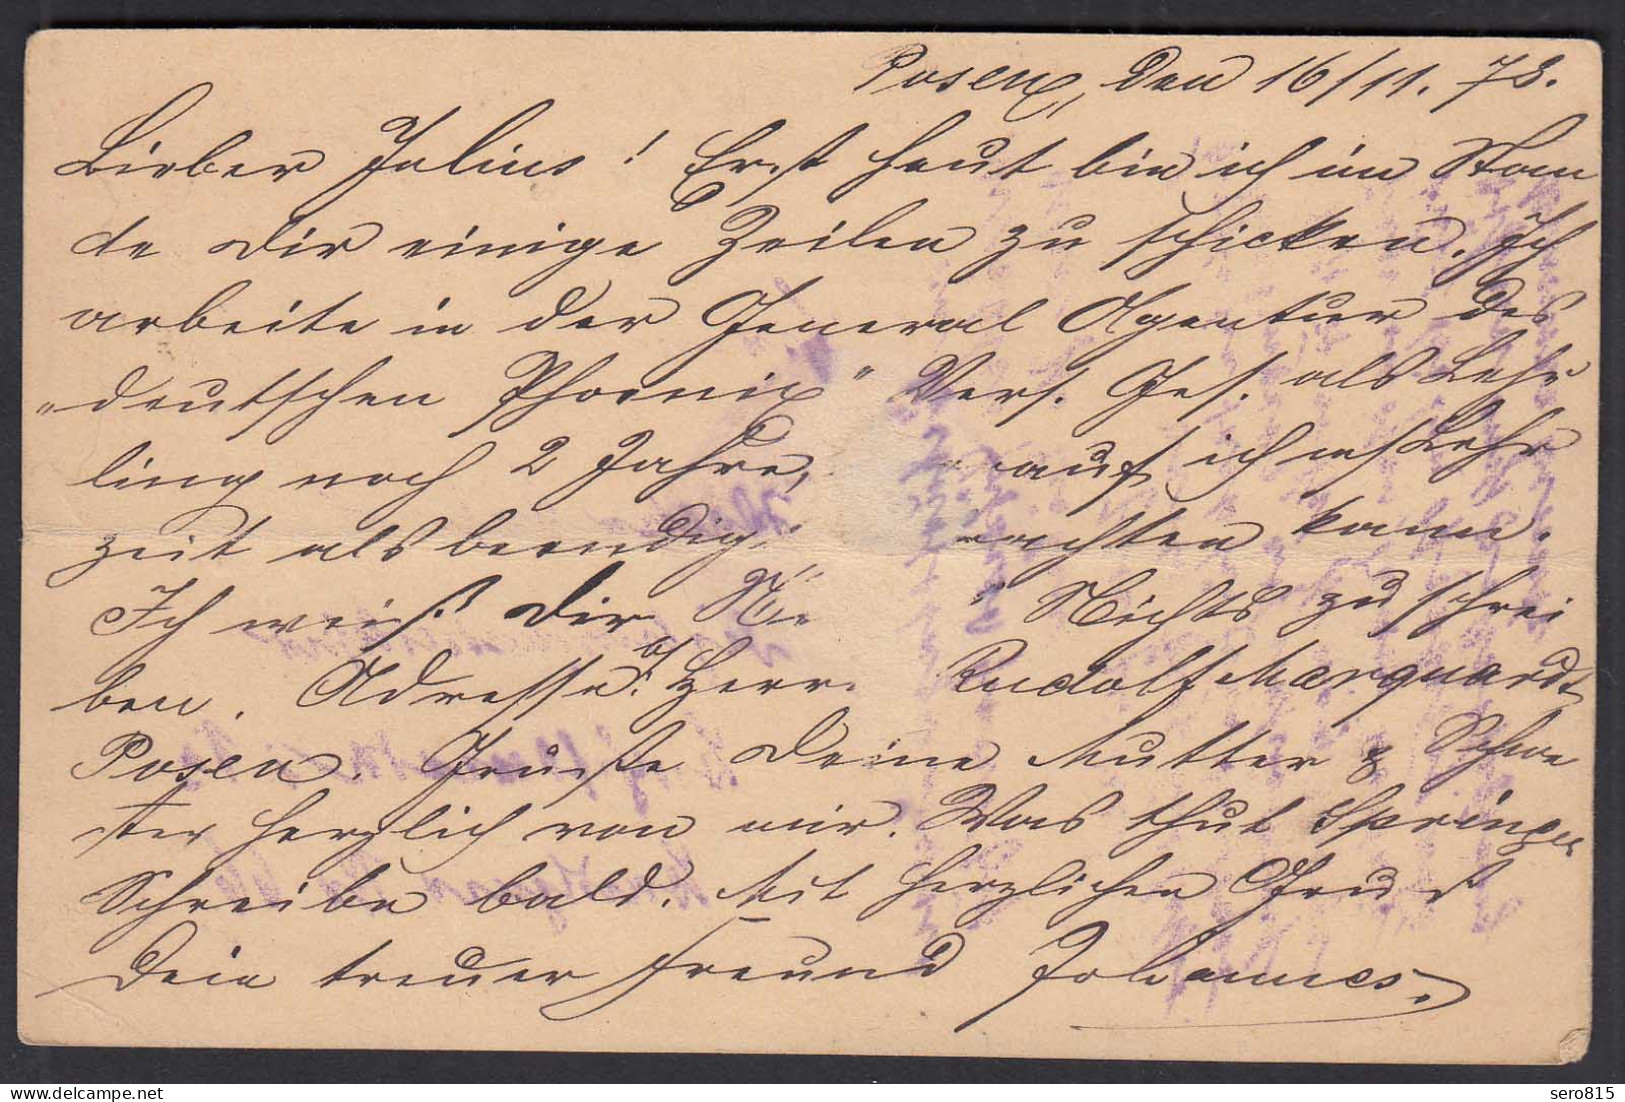 Posen, den 16/11. 78.
Lieber Julius! Erst heut bin ich im Stan
de Dir einige Zeilen zu schicken. Ich
arbeite in der General Agentur des
„deutschen Phoenix" Vers. Ges. als Lehr
ling noch 2 Jahre, auf ich Lehr
zeit als beendig achten kann.
Ich weiß Dir Nichts zu schrei
ben. Adresse: Herr Rudolf Marquardt
Posen. Grüße Deine Mutter & Schwe
ster herzlich von mir. Was thut Springer
Schreibe bald. Mit herzlichen Gruß
Dein treuer Freund Johannes.
sero815